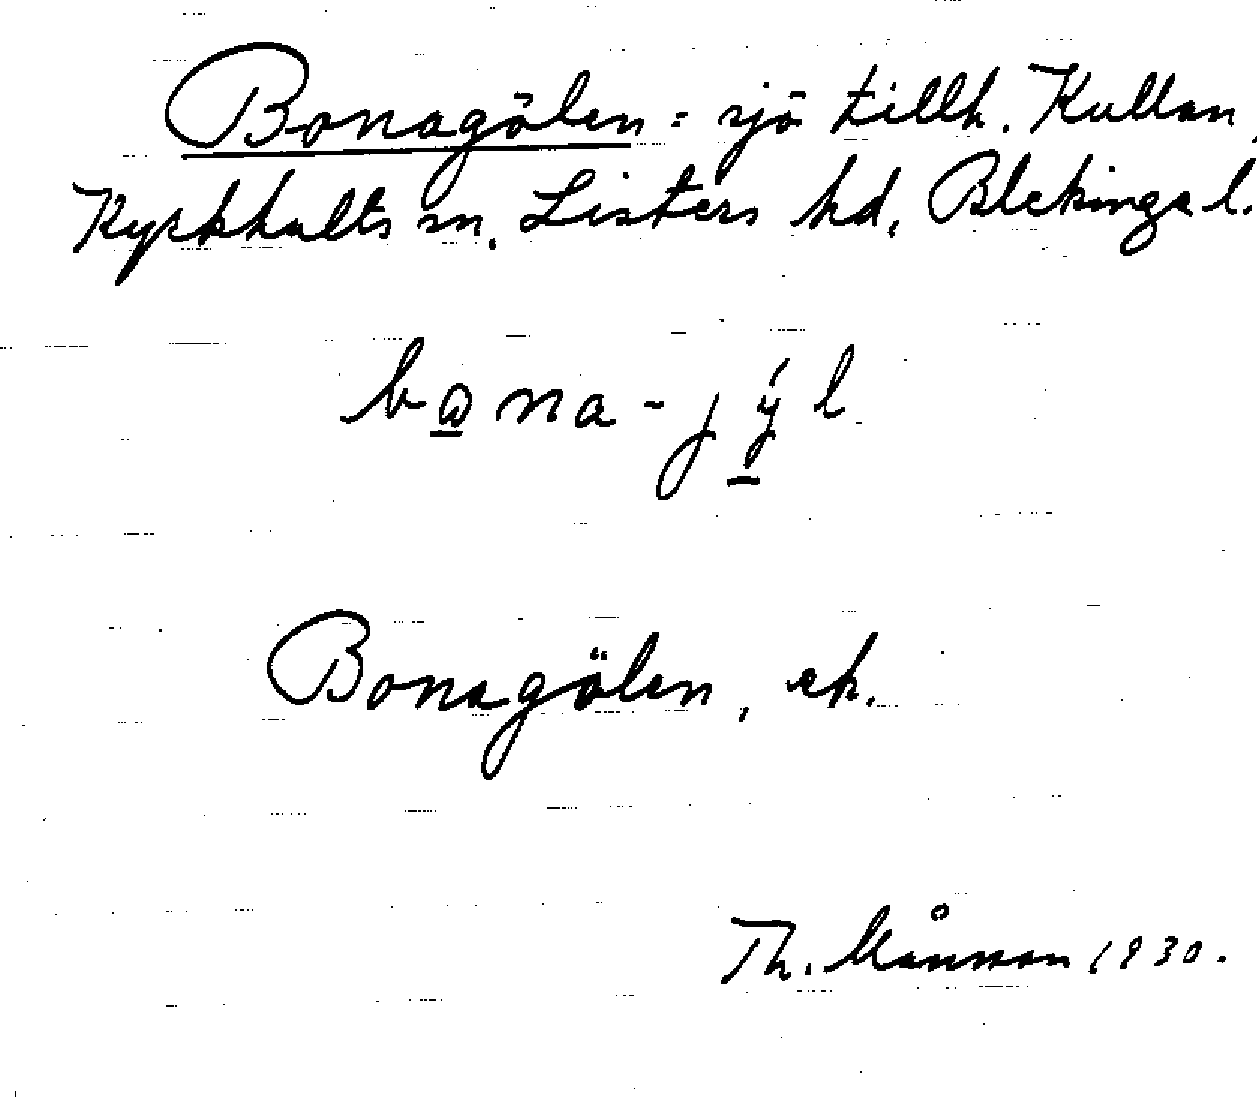 Bonagölen = sjö tillh. Kullan,
Kyrkhults sn. Listers hd, Blekinge l.
bω̲na-jý̲l
Bonagölen, ek.
Th. Månsson 1930.